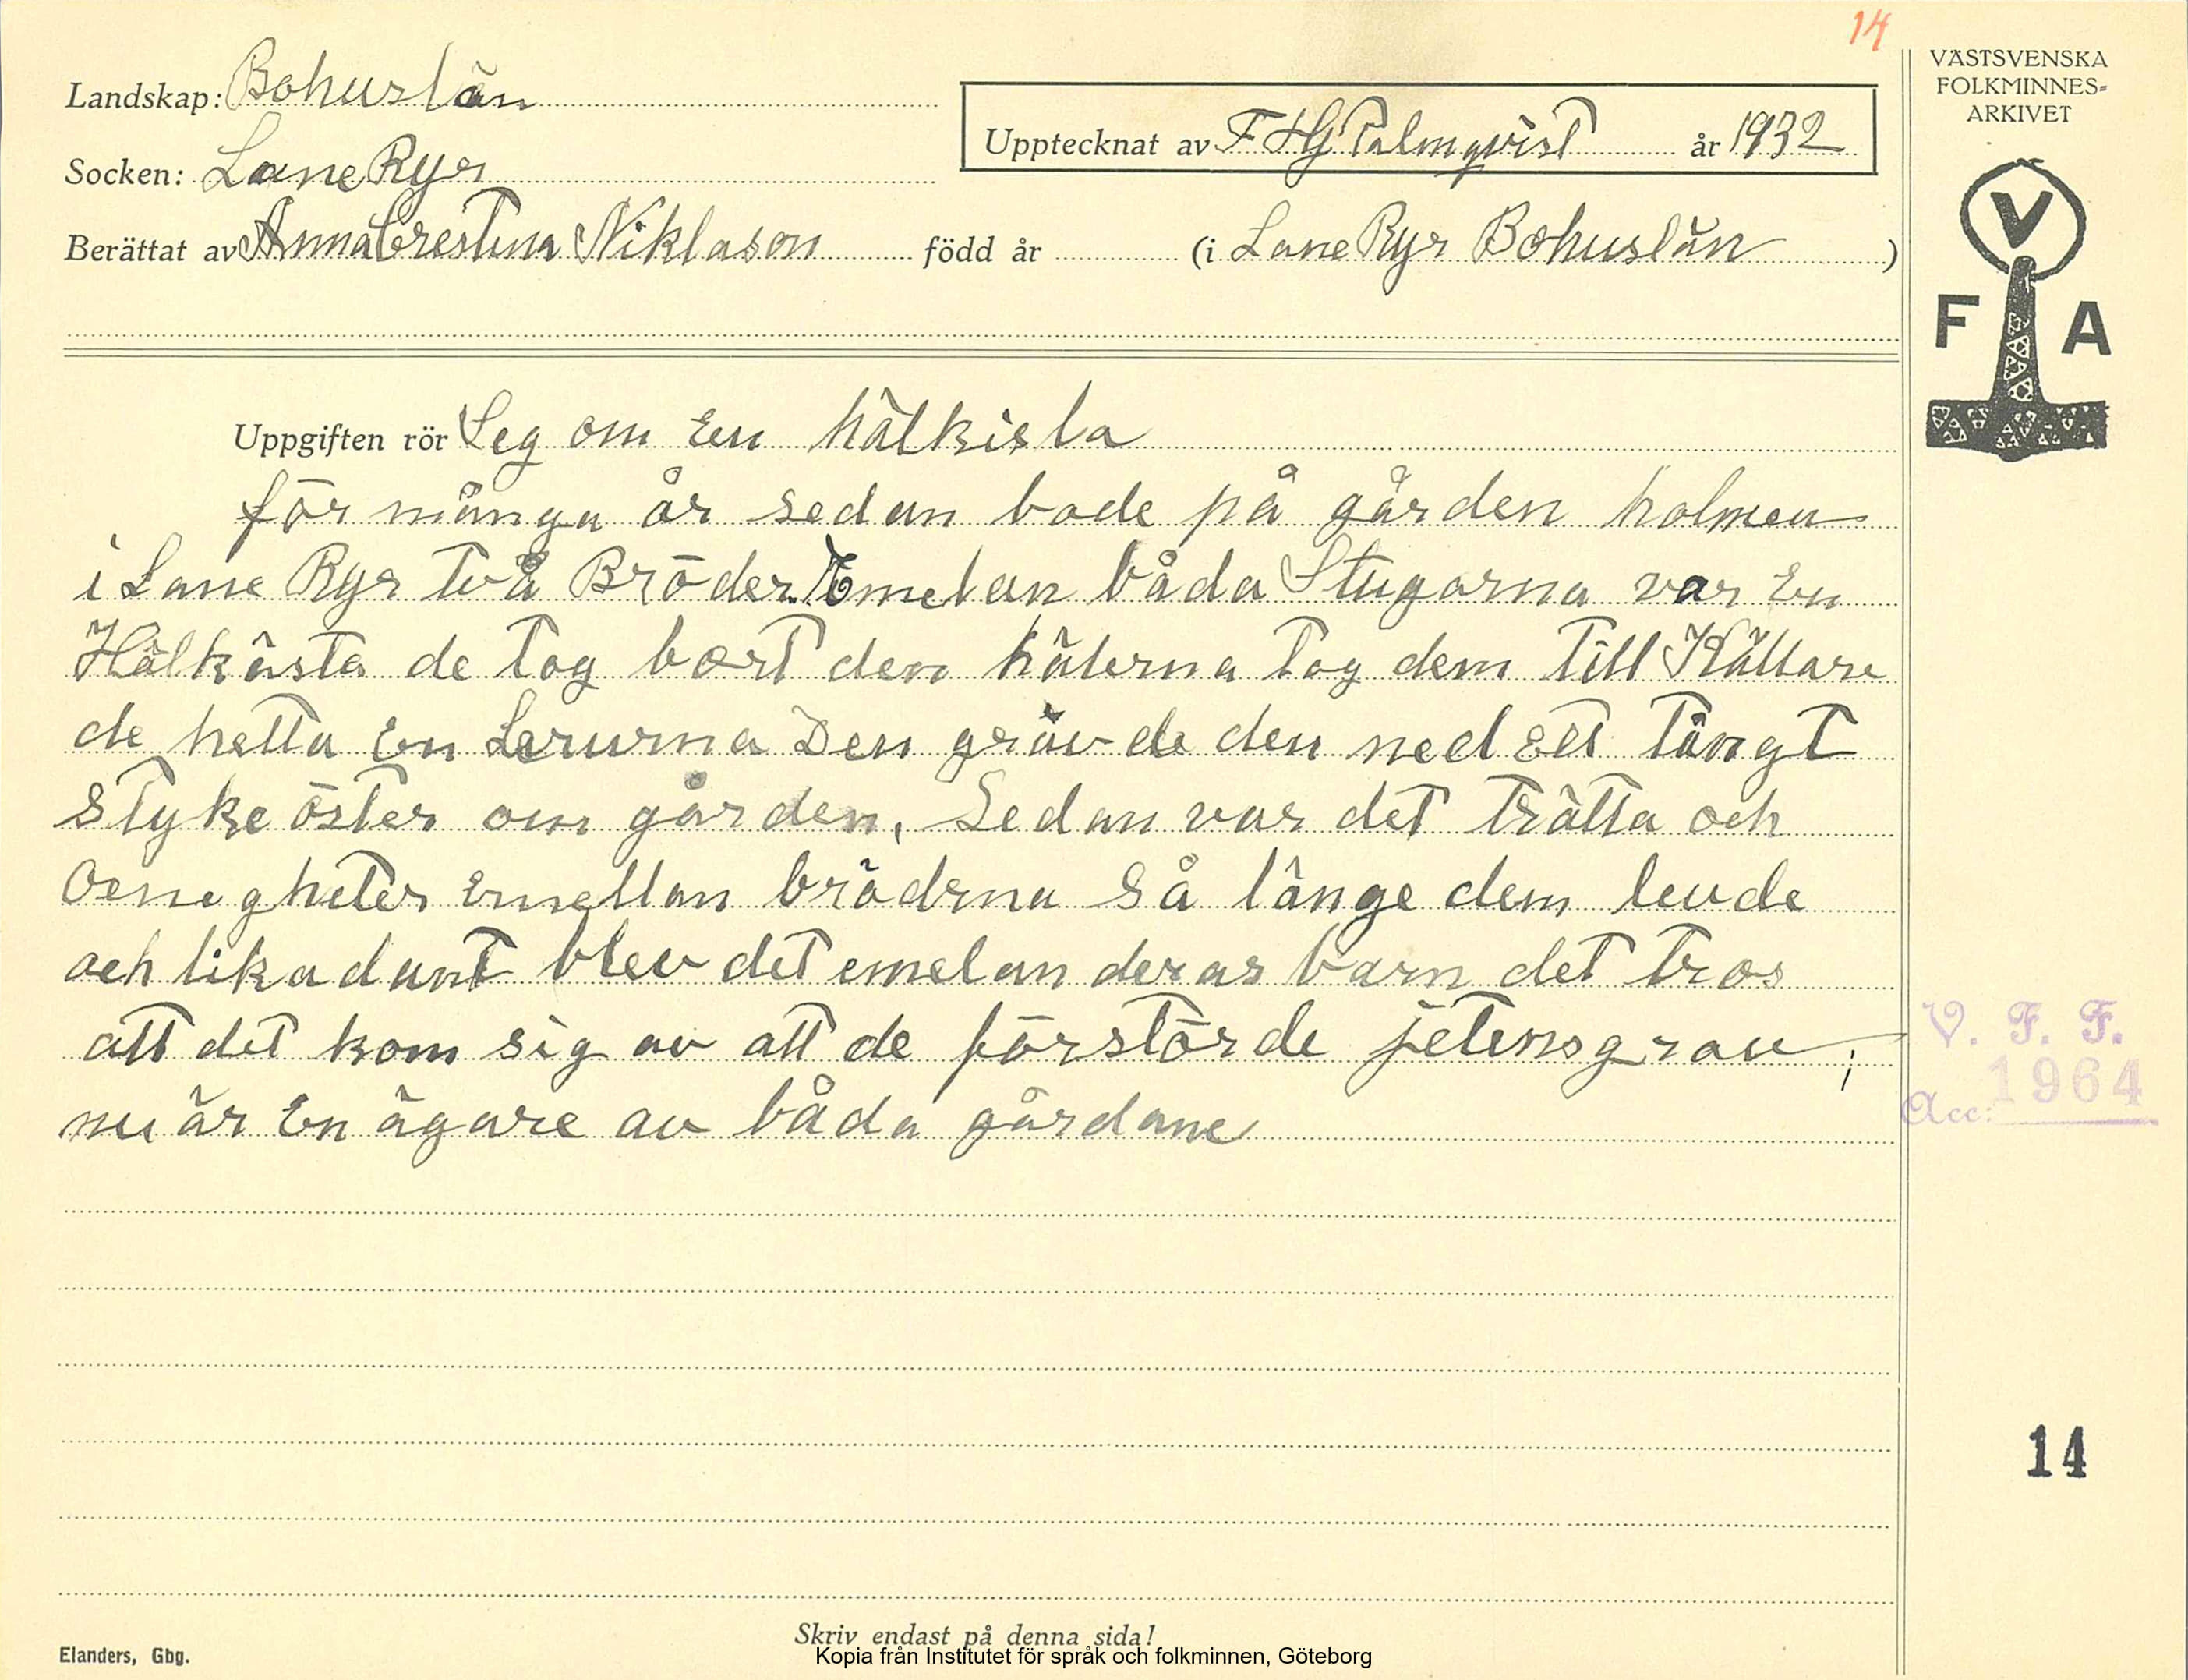 14
VÄSTSVENSKA
FOLKMINNES-
ARKIVET
V
F A
Landskap: Bohuslän
Upptecknat av F Hj Palmqvist år 1932
Socken: Lane Ryr
Berättat av Anna Crestina Niklason född år (i Lane Ryr Bohuslän )
Uppgiften rör Seg om En hälkista
för många år sedan bode på gården holmen
i Lane Ryr två Bröder. Emelan båda Stugorna var En
Hälkästa de tog bort den hälerna tog dem till Källare
de hetta En Lerurna Den grävde den ned Ett långt
styke öster om gården, Sedan var det trätta och
Oenegheter Emellan bröderna så länge dem levde
och likadant blev det emelan deras barn det tros
att det kom sig av att de förstörde jetensgrav ;
nu är En ägare av båda gårdane
V. F. F.
1964
Acc:
14
Skriv endast på denna sida!
Elanders, Gbg.
Kopia från Institutet för språk och folkminnen, Göteborg